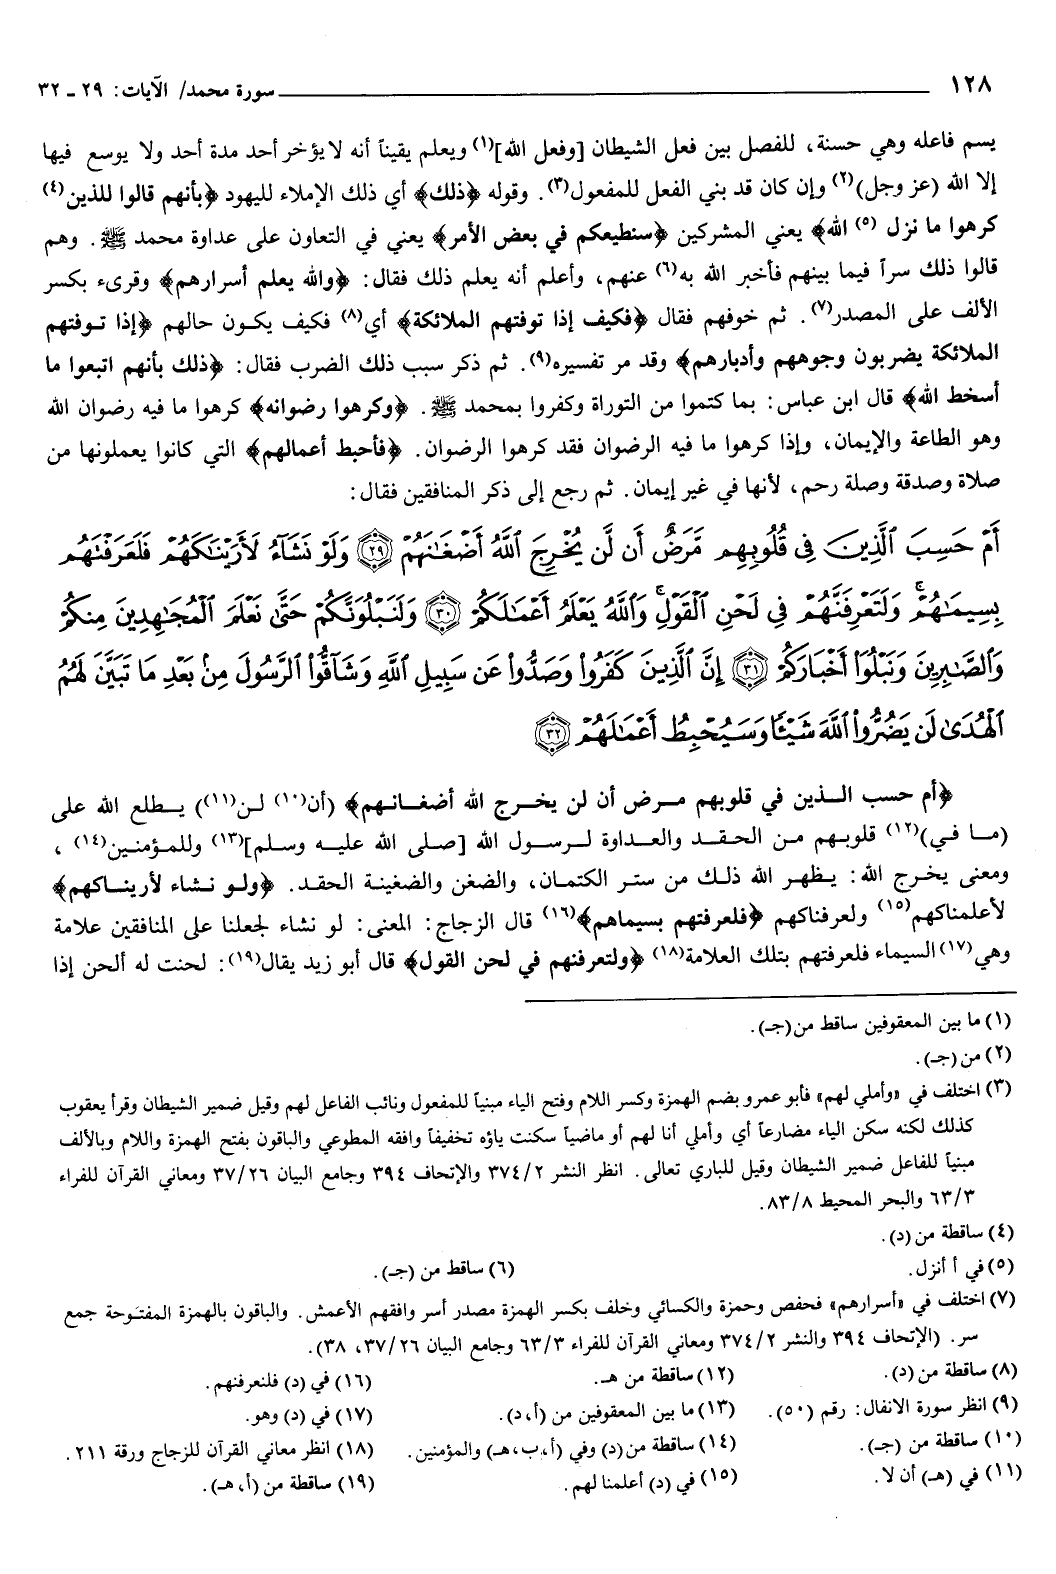 ١٢٨ سورة محمد/ الآيات: ٢٩ ـ ٣٢
يسم فاعله وهي حسنة، للفصل بين فعل الشيطان [وفعل الله](١) ويعلم يقيناً أنه لا يؤخر أحد مدة أحد ولا يوسع فيها
إلا الله (عز وجل)(٢) وإن كان قد بني الفعل للمفعول(٣). وقوله ﴿ذلك﴾ أي ذلك الإملاء لليهود ﴿بأنهم قالوا للذين(٤)
كرهوا ما نزل (٥) الله﴾ يعني المشركين ﴿سنطيعكم في بعض الأمر﴾ يعني في التعاون على عداوة محمد ﷺ. وهم
قالوا ذلك سراً فيما بينهم فأخبر الله به(٦) عنهم، وأعلم أنه يعلم ذلك فقال: ﴿والله يعلم أسرارهم﴾ وقرىء بكسر
الألف على المصدر(٧). ثم خوفهم فقال ﴿فكيف إذا توفتهم الملائكة﴾ أي(٨) فكيف يكون حالهم ﴿إذا توفتهم
الملائكة يضربون وجوههم وأدبارهم﴾ وقد مر تفسيره(٩). ثم ذكر سبب ذلك الضرب فقال: ﴿ذلك بأنهم اتبعوا ما
أسخط الله﴾ قال ابن عباس: بما كتموا من التوراة وكفروا بمحمد ﷺ. ﴿وكرهوا رضوانه﴾ كرهوا ما فيه رضوان الله
وهو الطاعة والإيمان، وإذا كرهوا ما فيه الرضوان فقد كرهوا الرضوان. ﴿فأحبط أعمالهم﴾ التي كانوا يعملونها من
صلاة وصدقة وصلة رحم، لأنها في غير إيمان. ثم رجع إلى ذكر المنافقين فقال:
أَمْ حَسِبَ ٱلَّذِينَ فِي قُلُوبِهِم مَّرَضٌ أَن لَّن يُخْرِجَ ٱللَّهُ أَضْغَٰنَهُمْ ﴿٢٩﴾ وَلَوْ نَشَآءُ لَأَرَيْنَٰكَهُمْ فَلَعَرَفْتَهُم
بِسِيمَٰهُمْ ۚ وَلَتَعْرِفَنَّهُمْ فِي لَحْنِ ٱلْقَوْلِ ۚ وَٱللَّهُ يَعْلَمُ أَعْمَٰلَكُمْ ﴿٣٠﴾ وَلَنَبْلُوَنَّكُمْ حَتَّىٰ نَعْلَمَ ٱلْمُجَٰهِدِينَ مِنكُمْ
وَٱلصَّٰبِرِينَ وَنَبْلُوَا۟ أَخْبَارَكُمْ ﴿٣١﴾ إِنَّ ٱلَّذِينَ كَفَرُوا۟ وَصَدُّوا۟ عَن سَبِيلِ ٱللَّهِ وَشَآقُّوا۟ ٱلرَّسُولَ مِنۢ بَعْدِ مَا تَبَيَّنَ لَهُمُ
ٱلْهُدَىٰ لَن يَضُرُّوا۟ ٱللَّهَ شَيْـًٔا وَسَيُحْبِطُ أَعْمَٰلَهُمْ ﴿٣٢﴾
﴿أم حسب الذين في قلوبهم مرض أن لن يخرج الله أضغانهم﴾ (أن(١٠) لن(١١)) يطلع الله على
(ما في)(١٢) قلوبهم من الحقد والعداوة لرسول الله [صلى الله عليه وسلم](١٣) وللمؤمنين(١٤)،
ومعنى يخرج الله: يظهر الله ذلك من ستر الكتمان، والضغن والضغينة الحقد. ﴿ولو نشاء لأريناكهم﴾
لأعلمناكهم(١٥) ولعرفناكهم ﴿فلعرفتهم بسيماهم﴾(١٦) قال الزجاج: المعنى: لو نشاء لجعلنا على المنافقين علامة
وهي(١٧) السيماء فلعرفتهم بتلك العلامة(١٨) ﴿ولتعرفنهم في لحن القول﴾ قال أبو زيد يقال(١٩): لحنت له ألحن إذا
(١) ما بين المعقوفين ساقط من (جـ).
(٢) من (جـ).
(٣) اختلف في «وأملي لهم» فأبو عمرو بضم الهمزة وكسر اللام وفتح الياء مبنياً للمفعول ونائب الفاعل لهم وقيل ضمير الشيطان وقرأ يعقوب
كذلك لكنه سكن الياء مضارعاً أي وأملي أنا لهم أو ماضياً سكنت ياؤه تخفيفاً وافقه المطوعي والباقون بفتح الهمزة واللام وبالألف
مبنياً للفاعل ضمير الشيطان وقيل للباري تعالى. انظر النشر ٣٧٤/٢ والإتحاف ٣٩٤ وجامع البيان ٣٧/٢٦ ومعاني القرآن للفراء
٦٣/٣ والبحر المحيط ٨٣/٨.
(٤) ساقطة من (د).
(٥) في أ أنزل. (٦) ساقط من (جـ).
(٧) اختلف في «أسرارهم» فحفص وحمزة والكسائي وخلف بكسر الهمزة مصدر أسر وافقهم الأعمش. والباقون بالهمزة المفتوحة جمع
سر. (الإتحاف ٣٩٤ والنشر ٣٧٤/٢ ومعاني القرآن للفراء ٦٣/٣ وجامع البيان ٣٧/٢٦، ٣٨).
(٨) ساقطة من (د). (١٢) ساقطة من هـ. (١٦) في (د) فلنعرفنهم.
(٩) انظر سورة الانفال: رقم (٥٠). (١٣) ما بين المعقوفين من (أ، د). (١٧) في (د) وهو.
(١٠) ساقطة من (جـ). (١٤) ساقطة من (د) وفي (أ، ب، هـ) والمؤمنين. (١٨) انظر معاني القرآن للزجاج ورقة ٢١١.
(١١) في (هـ) أن لا. (١٥) في (د) أعلمنا لهم. (١٩) ساقطة من (أ، هـ).